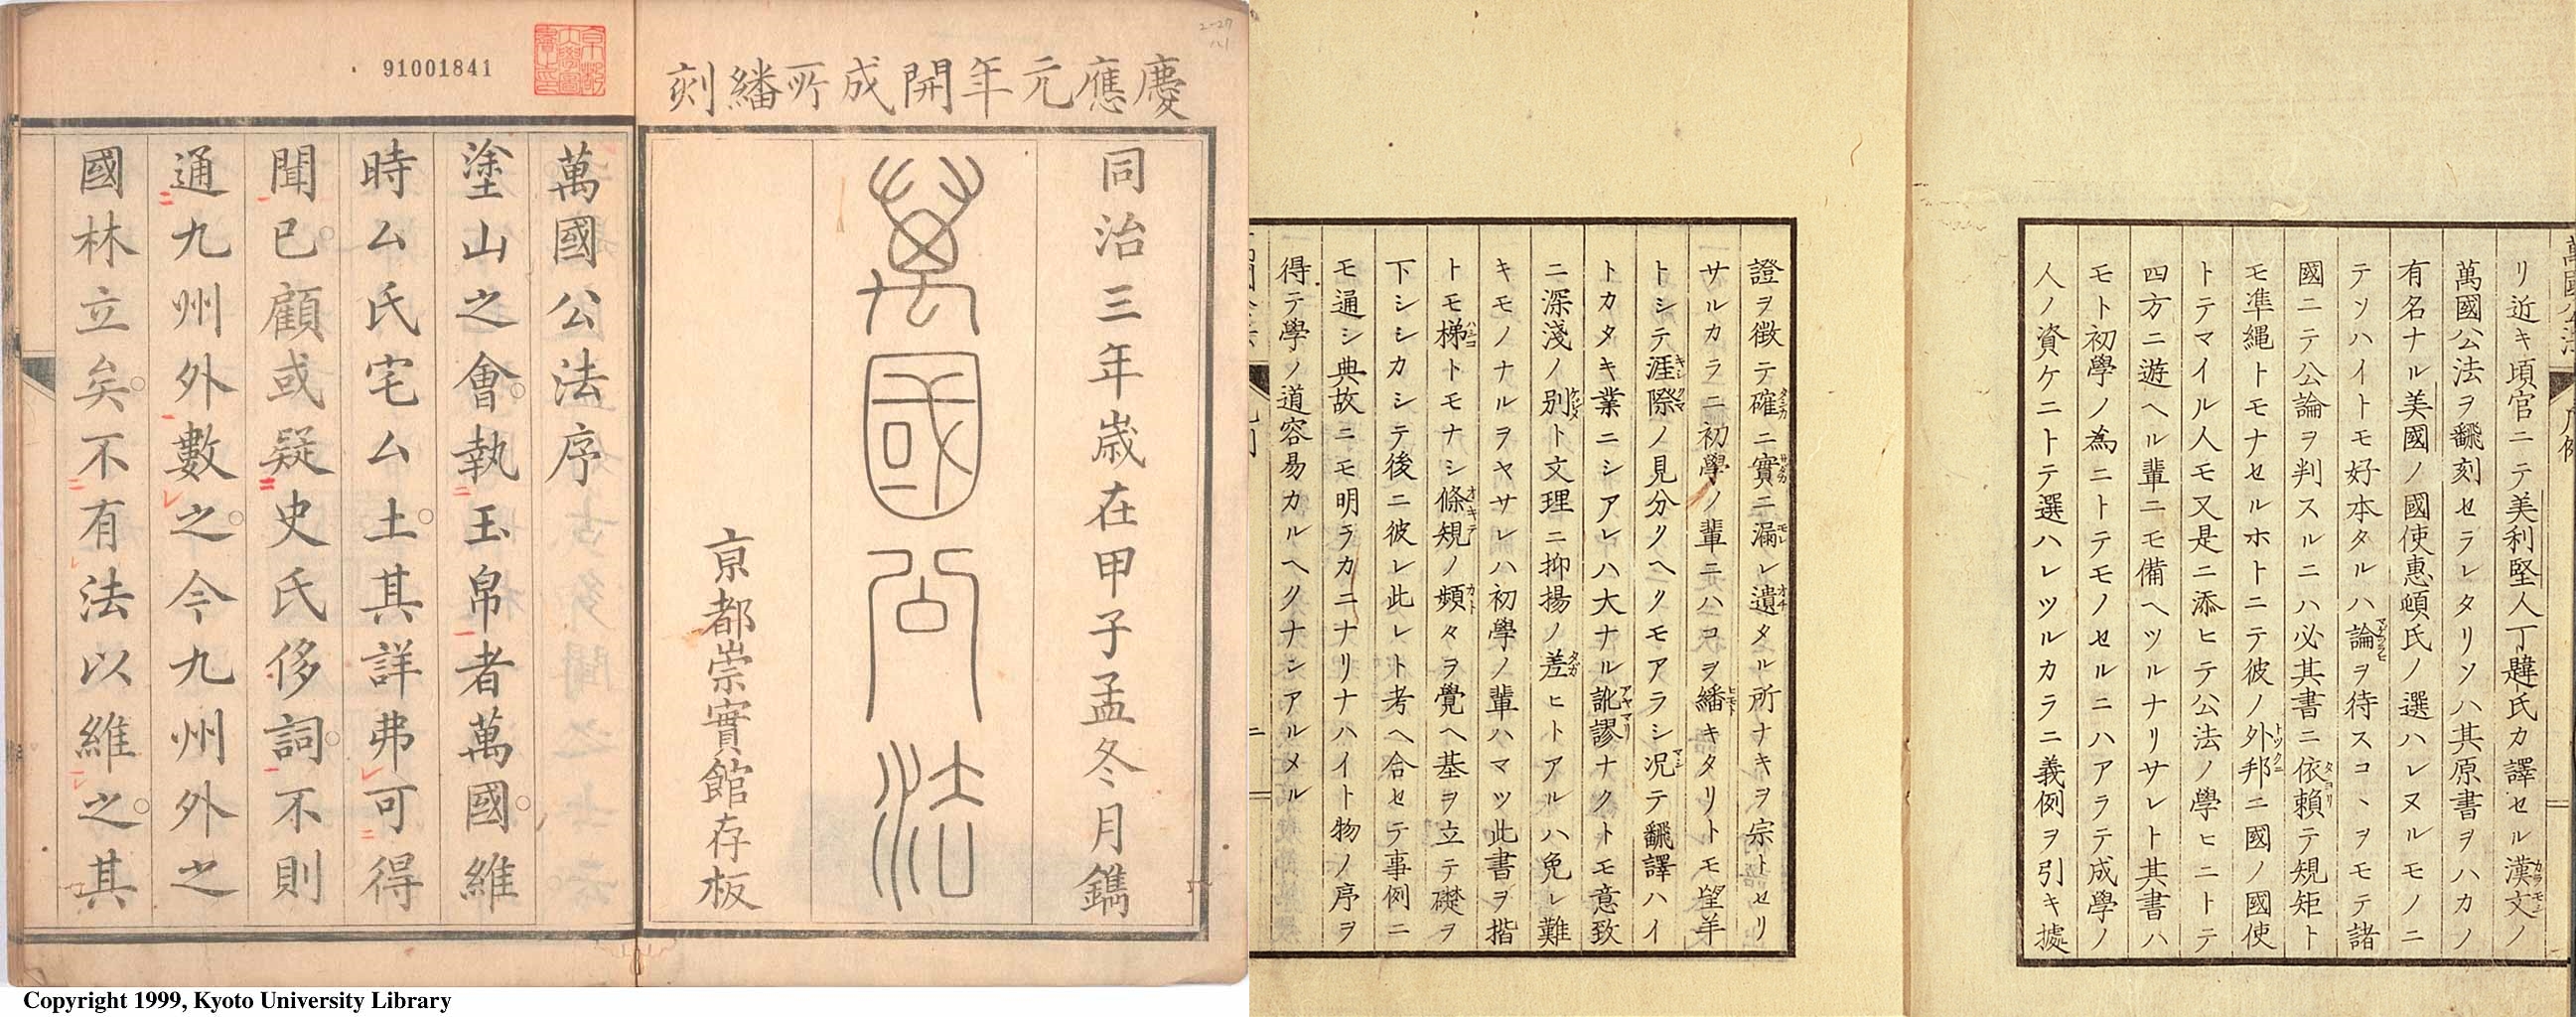 慶應元年開成所繙刻
同治三年歲在甲子孟冬月鐫
萬國公法
京都崇實館存板
91001841
萬國公法序
塗山之會執玉帛者萬國維
時厶氏宅厶土其詳弗可得
聞已顧或疑史氏侈詞不則
通九州外數之今九州外之
國林立矣不有法以維之其
Copyright 1999, Kyoto University Library
リ近キ頃官ニテ美利堅人丁韙氏カ譯セル漢文ノ
萬國公法ヲ飜刻セラレタリソハ其原書ヲハカノ
有名ナル美國ノ國使惠頓氏ノ選ハレヌルモノニ
テソハイトモ好本タルハ論ヲ待スコヽヲモテ諸
國ニテ公論ヲ判スルニハ必其書ニ依頼テ規矩ト
モ準繩トモナセルホトニテ彼ノ外邦ニ國ノ國使
トテマイル人モ又是ニ添ヒテ公法ノ學ヒニトテ
四方ニ遊ヘル輩ニモ備ヘツルナリサレト其書ハ
モト初學ノ為ニトテモノセルニハアラテ成學ノ
人ノ資ケニトテ選ハレツルカラニ義例ヲ引キ據
證ヲ徴テ確ニ實ニ漏レ遺タル所ナキヲ宗トセリ
サルカラニ初學ノ輩ニハコヲ繙キタリトモ望羊
トシテ涯際ノ見分クヘクモアラシ况テ飜譯ハイ
トカタキ業ニシアレハ大ナル訛謬ナクトモ意致
ニ深淺ノ別ト文理ニ抑揚ノ差ヒトアルハ免レ難
キモノナルヲヤサレハ初學ノ輩ハマツ此書ヲ揩
トモ梯トモナシ條規ノ頻々ヲ覺ヘ基ヲ立テ礎ヲ
下シシカシテ後ニ彼レ此レト考ヘ合セテ事例ニ
モ通シ典故ニモ明ラカニナリナハイト物ノ序ヲ
得テ學ノ道容易カルヘクナンアルメル